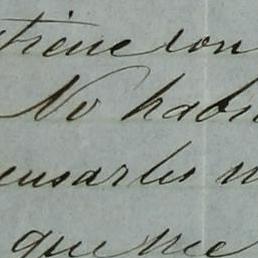 tiene con
No habi
ensarles n
que me